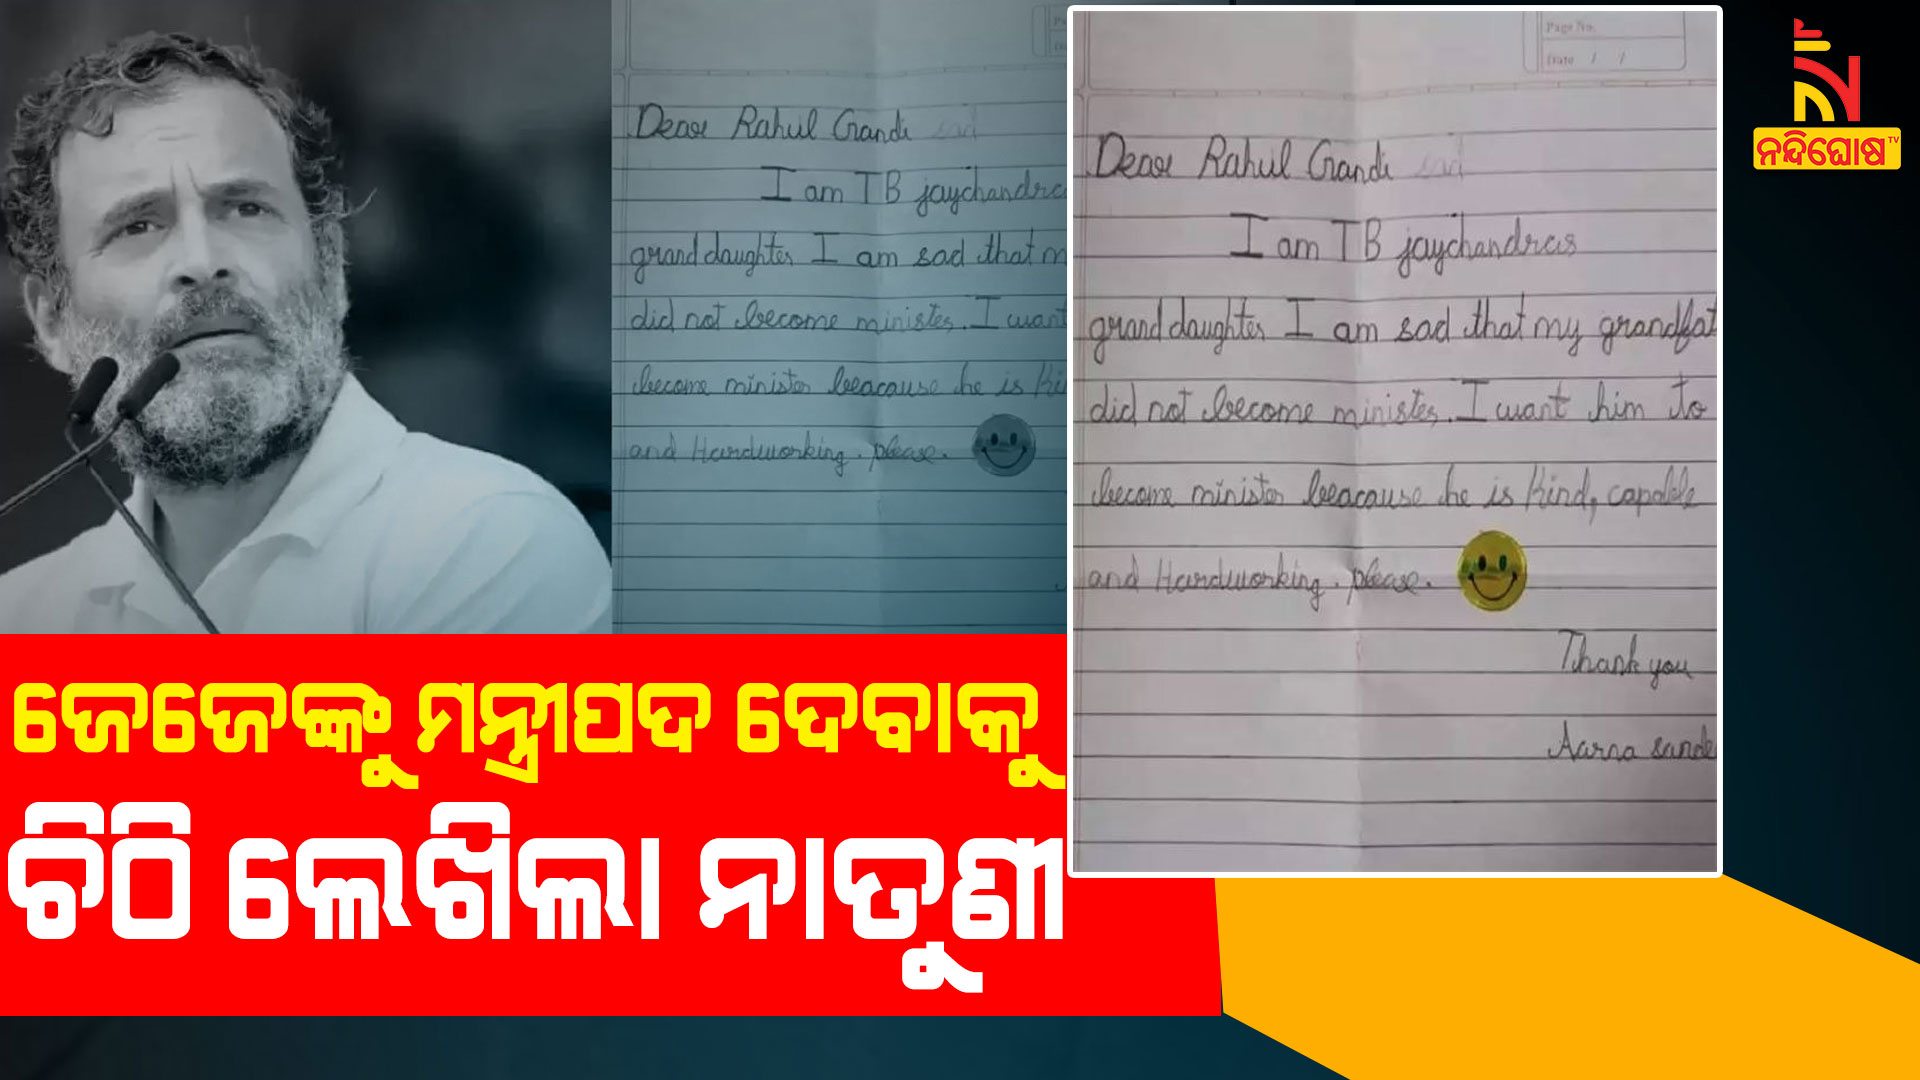 Dear Rahul Gandi sad
I am TB jaychandra
grand daughter I am sad that m
did not become minister. I want
become minister beacause he is Ki
and Hardworking. please.
Page No.
Date / /
Dear Rahul Gandi sad
I am TB jaychandras
grand daughter I am sad that my grandfat
did not become minister. I want him to
become minister beacause he is Kind, capable
and Hardworking. please.
Thank you
Aarna sande
ନନ୍ଦିଘୋଷ TV
ଜେଜେଙ୍କୁ ମନ୍ତ୍ରୀପଦ ଦେବାକୁ
ଚିଠି ଲେଖିଲା ନାତୁଣୀ